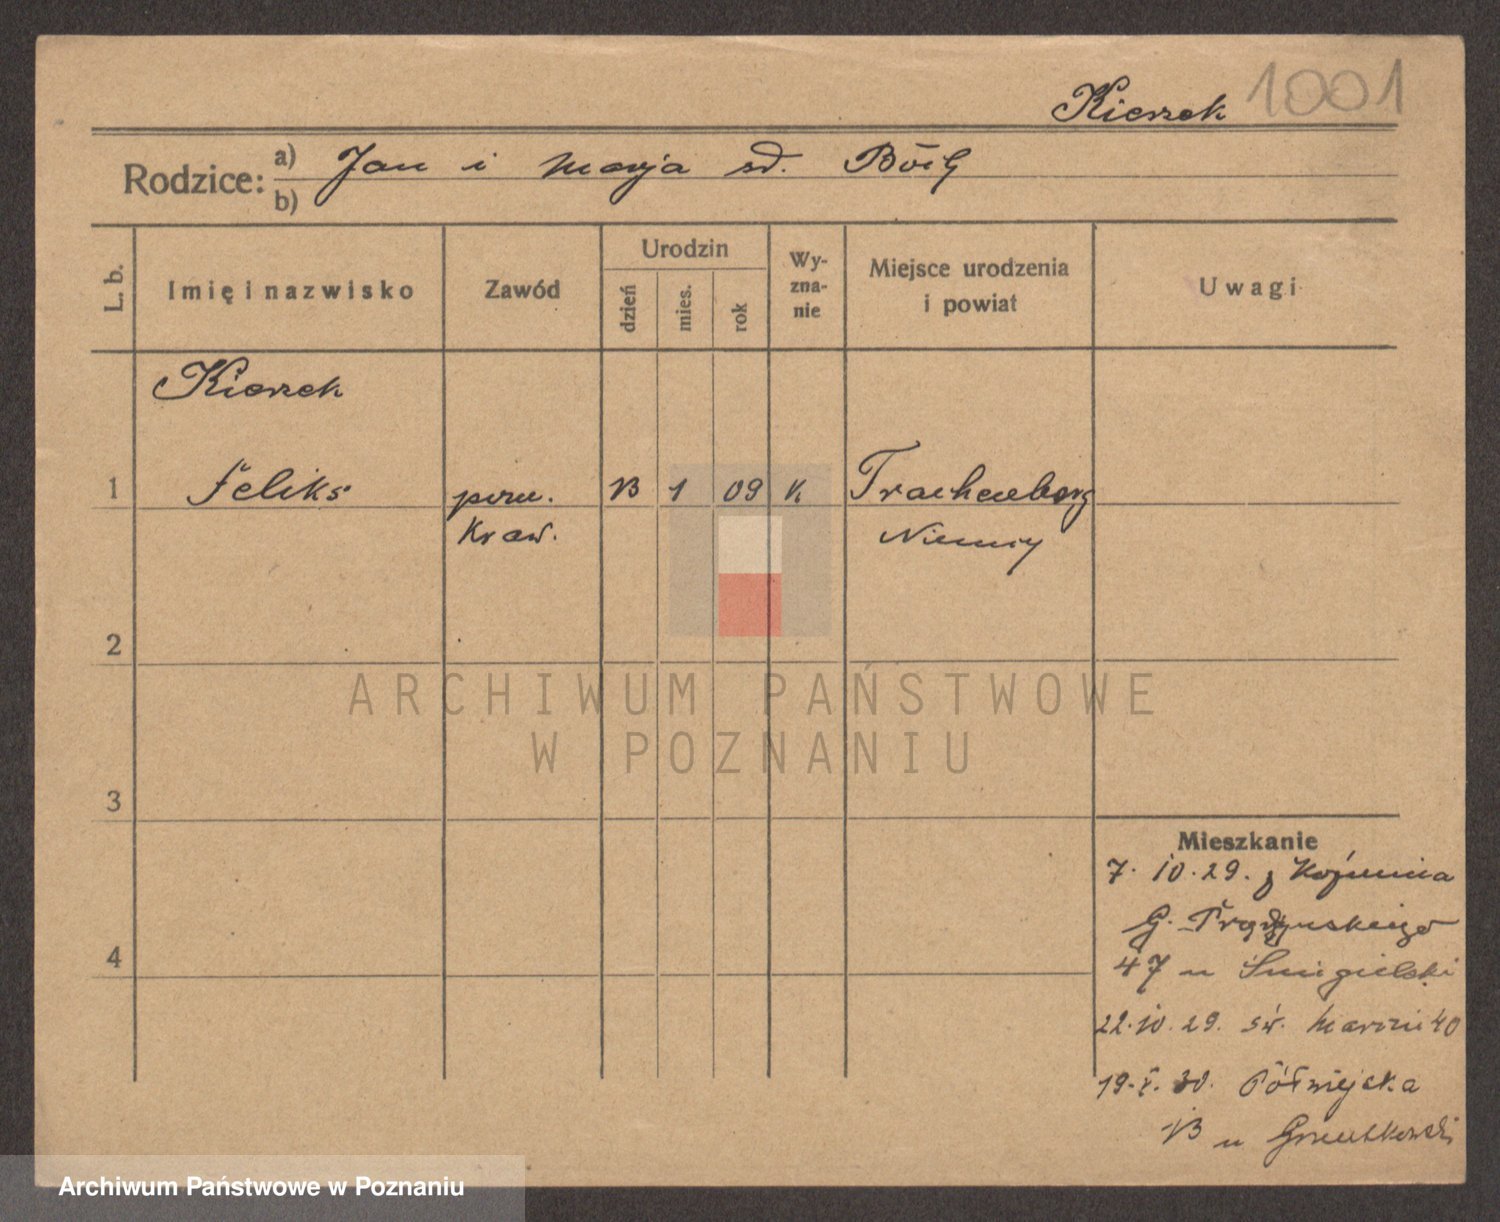 Kierzek 1001
Rodzice: a) Jan i Marja zd.
b)
L. b.
Imię i nazwisko
Zawód
Urodzin
dzień
mies.
rok
Wy-
zna-
nie
Miejsce urodzenia
i powiat
Uwagi
Kierzek
1 Feliks pom. 13 1 09 k. Trachenberg
kraw. Niemcy
2
3
4
Mieszkanie
7.10.29. z Koźmina
G.
47 u Śmigielski
22.10.29. św. Marcin 40
19. 30. Półwiejska
13 u
ARCHIWUM PAŃSTWOWE
W POZNANIU
Archiwum Państwowe w Poznaniu